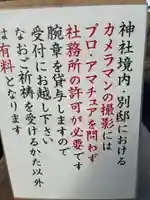 神社境内・別邸における
カメラマンの撮影には
プロ・アマチュアを問わず
社務所の許可が必要です
腕章を貸与しますので
受付にお越し下さい
なおご祈祷を受けるかた以外
は有料となります